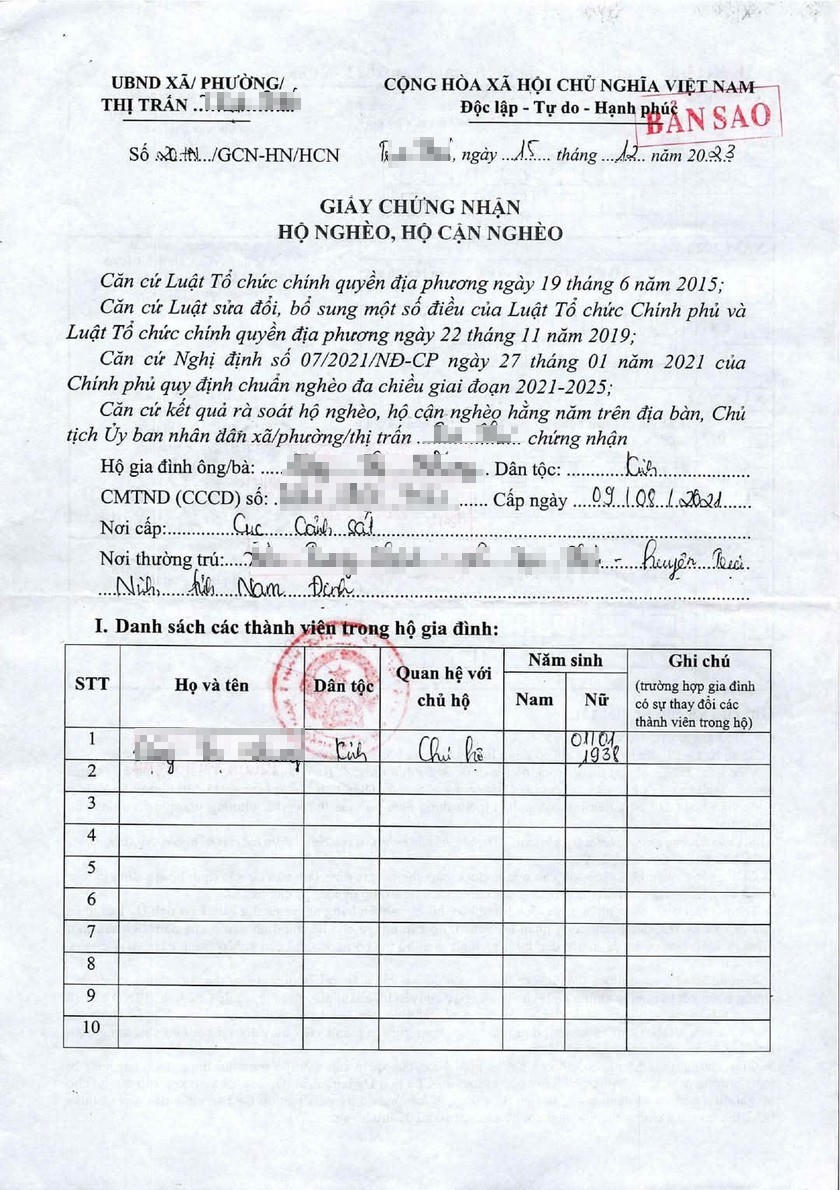 UBND XÃ/ PHƯỜNG/
THỊ TRẤN
CỘNG HÒA XÃ HỘI CHỦ NGHĨA VIỆT NAM
Độc lập - Tự do - Hạnh phúc
BẢN SAO
Số /GCN-HN/HCN
, ngày 15 tháng 12 năm 2023
GIẤY CHỨNG NHẬN
HỘ NGHÈO, HỘ CẬN NGHÈO
Căn cứ Luật Tổ chức chính quyền địa phương ngày 19 tháng 6 năm 2015;
Căn cứ Luật sửa đổi, bổ sung một số điều của Luật Tổ chức Chính phủ và
Luật Tổ chức chính quyền địa phương ngày 22 tháng 11 năm 2019;
Căn cứ Nghị định số 07/2021/NĐ-CP ngày 27 tháng 01 năm 2021 của
Chính phủ quy định chuẩn nghèo đa chiều giai đoạn 2021-2025;
Căn cứ kết quả rà soát hộ nghèo, hộ cận nghèo hằng năm trên địa bàn, Chủ
tịch Ủy ban nhân dân xã/phường/thị trấn chứng nhận
Hộ gia đình ông/bà: Dân tộc: Kinh
CMTND (CCCD) số: Cấp ngày 09/08/2021
Nơi cấp: Cục Cảnh sát
Nơi thường trú: - huyện Trực
Ninh tỉnh Nam Định
I. Danh sách các thành viên trong hộ gia đình:
STT Họ và tên Dân tộc Quan hệ với chủ hộ Năm sinh Nam Nữ Ghi chú
(trường hợp gia đình
có sự thay đổi các
thành viên trong hộ)
1 Kinh Chủ hộ 01/01 1938
2
3
4
5
6
7
8
9
10